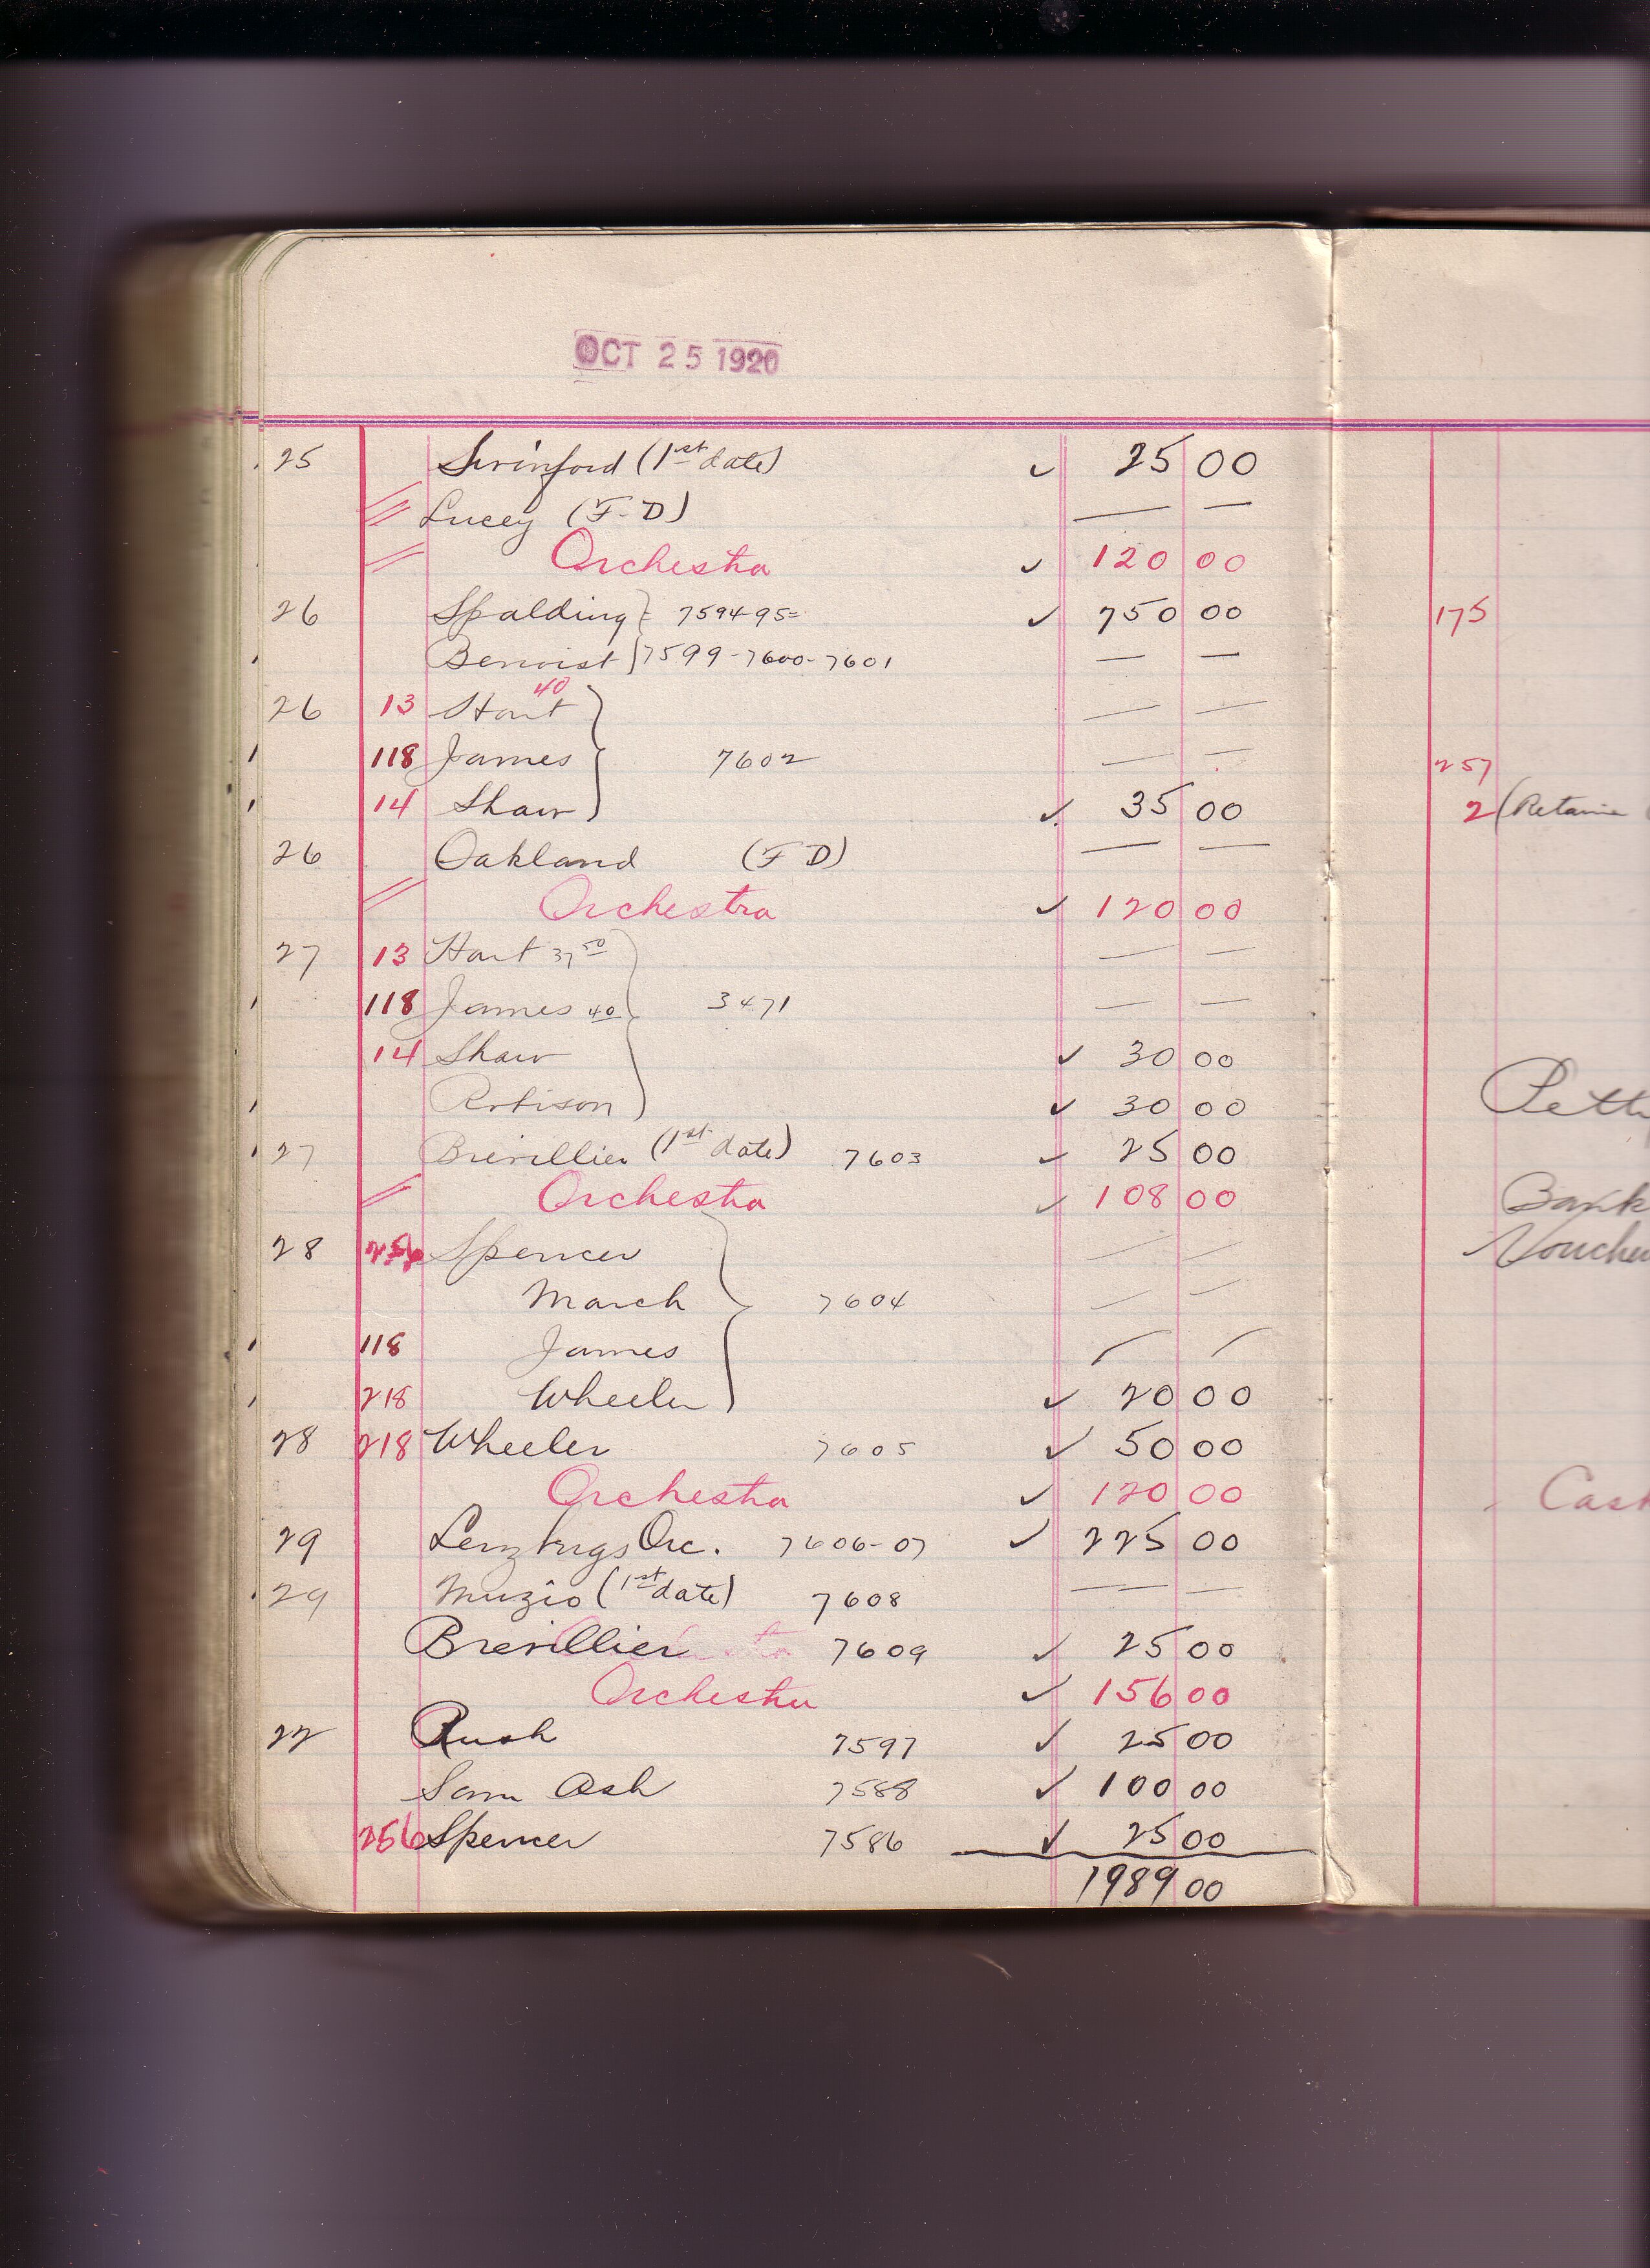 OCT 25 1920
25 Swinford (1st date) ✓ 25 00
Lucey (F-D) — —
Orchestra ✓ 120 00
26 Spalding } = 7594-95= ✓ 750 00
Benoist } 7599-7600-7601 — —
40
26 13 Hart } — —
118 James } 7602 — —
14 Shaw } ✓ 35 00
26 Oakland (F D) — —
Orchestra ✓ 120 00
27 13 Hart 37 50 — —
118 James 40 3471 — —
14 Shaw ✓ 30 00
Robison ✓ 30 00
27 Brevillier (1st date) 7603 ✓ 25 00
Orchestra ✓ 108 00
28 256 Spencer — —
March 7604 — —
118 James — —
218 Wheeler ✓ 20 00
28 218 Wheeler 7605 ✓ 50 00
Orchestra ✓ 120 00
29 Lenzbergs Orc. 7606-07 ✓ 225 00
29 Muzio (1st date) 7608 — —
Brevillier 7609 ✓ 25 00
Orchestra ✓ 156 00
22 Rush 7597 ✓ 25 00
Sam Ash 7588 ✓ 100 00
256 Spencer 7586 ✓ 25 00
1989 00
175
257
2 (Retaine
Bank
Voucher